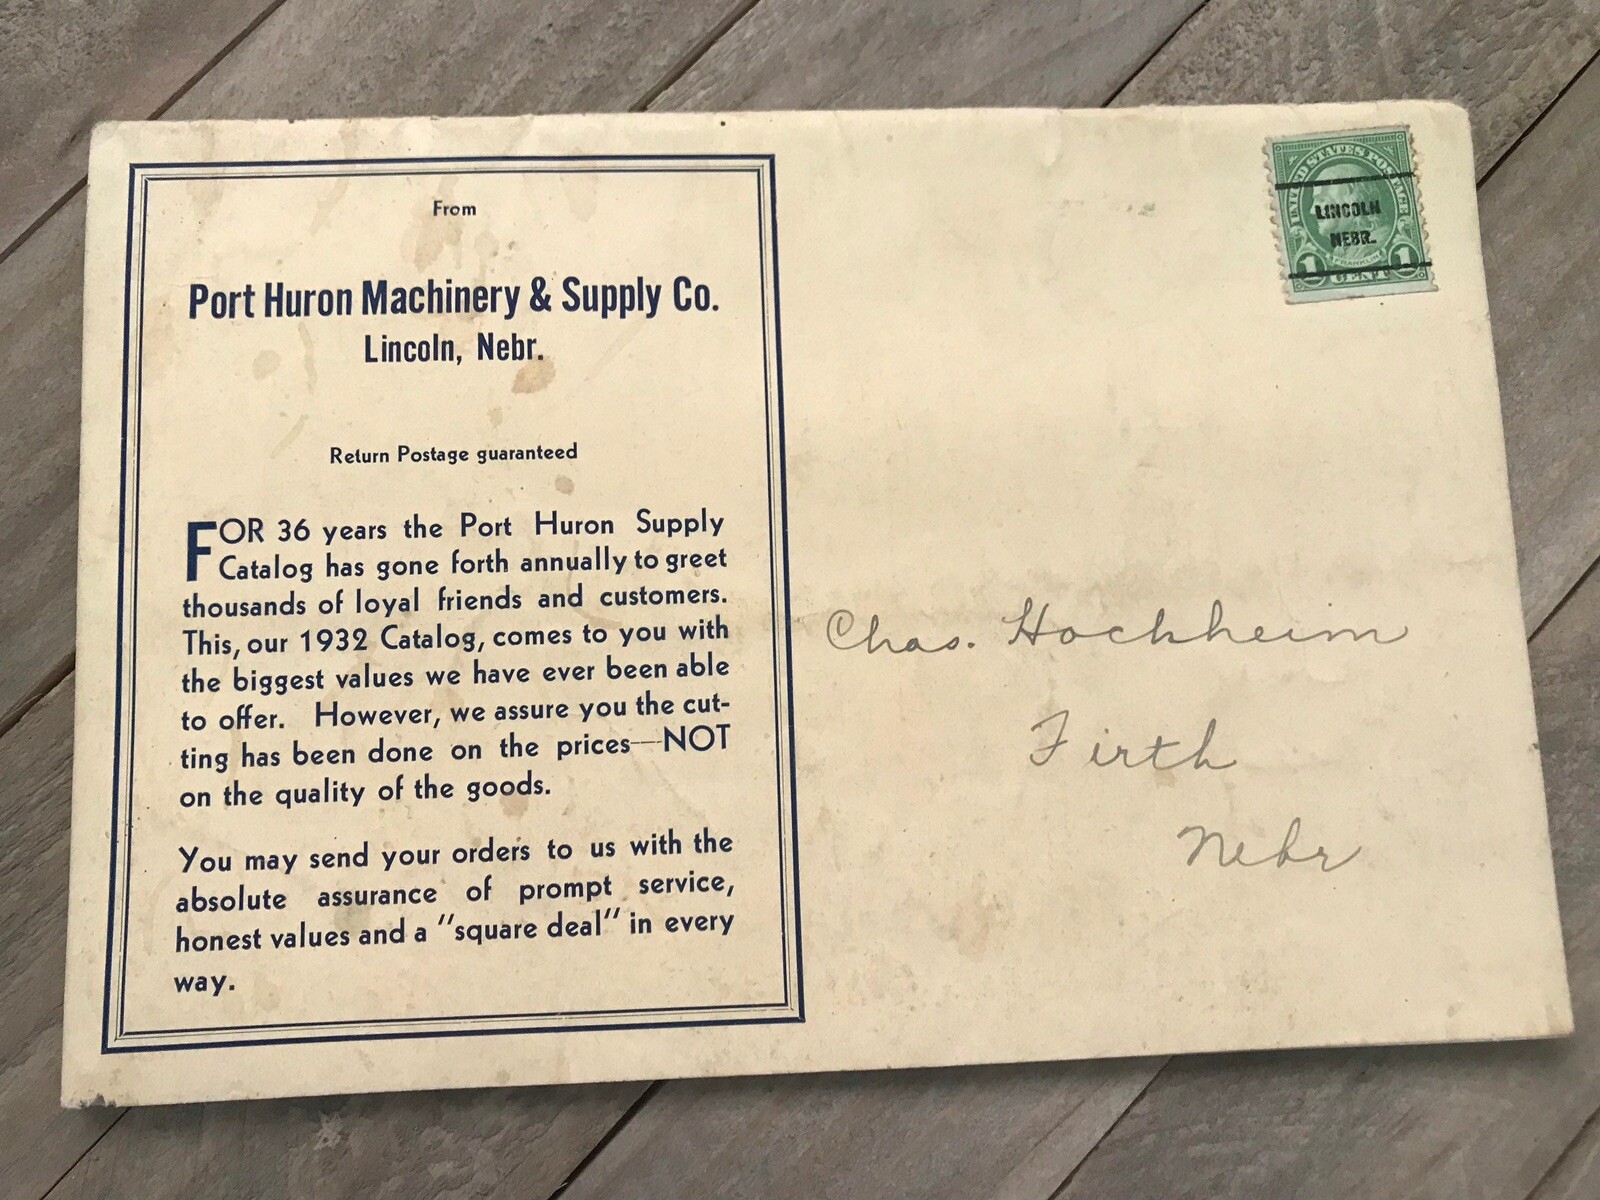 From
Port Huron Machinery & Supply Co.
Lincoln, Nebr.
Return Postage guaranteed
FOR 36 years the Port Huron Supply
Catalog has gone forth annually to greet
thousands of loyal friends and customers.
This, our 1932 Catalog, comes to you with
the biggest values we have ever been able
to offer. However, we assure you the cut-
ting has been done on the prices—NOT
on the quality of the goods.
You may send your orders to us with the
absolute assurance of prompt service,
honest values and a "square deal" in every
way.
UNITED STATES POSTAGE
LINCOLN
NEBR.
FRANKLIN
1 CENT 1
Chas. Hochheim
Firth
Nebr